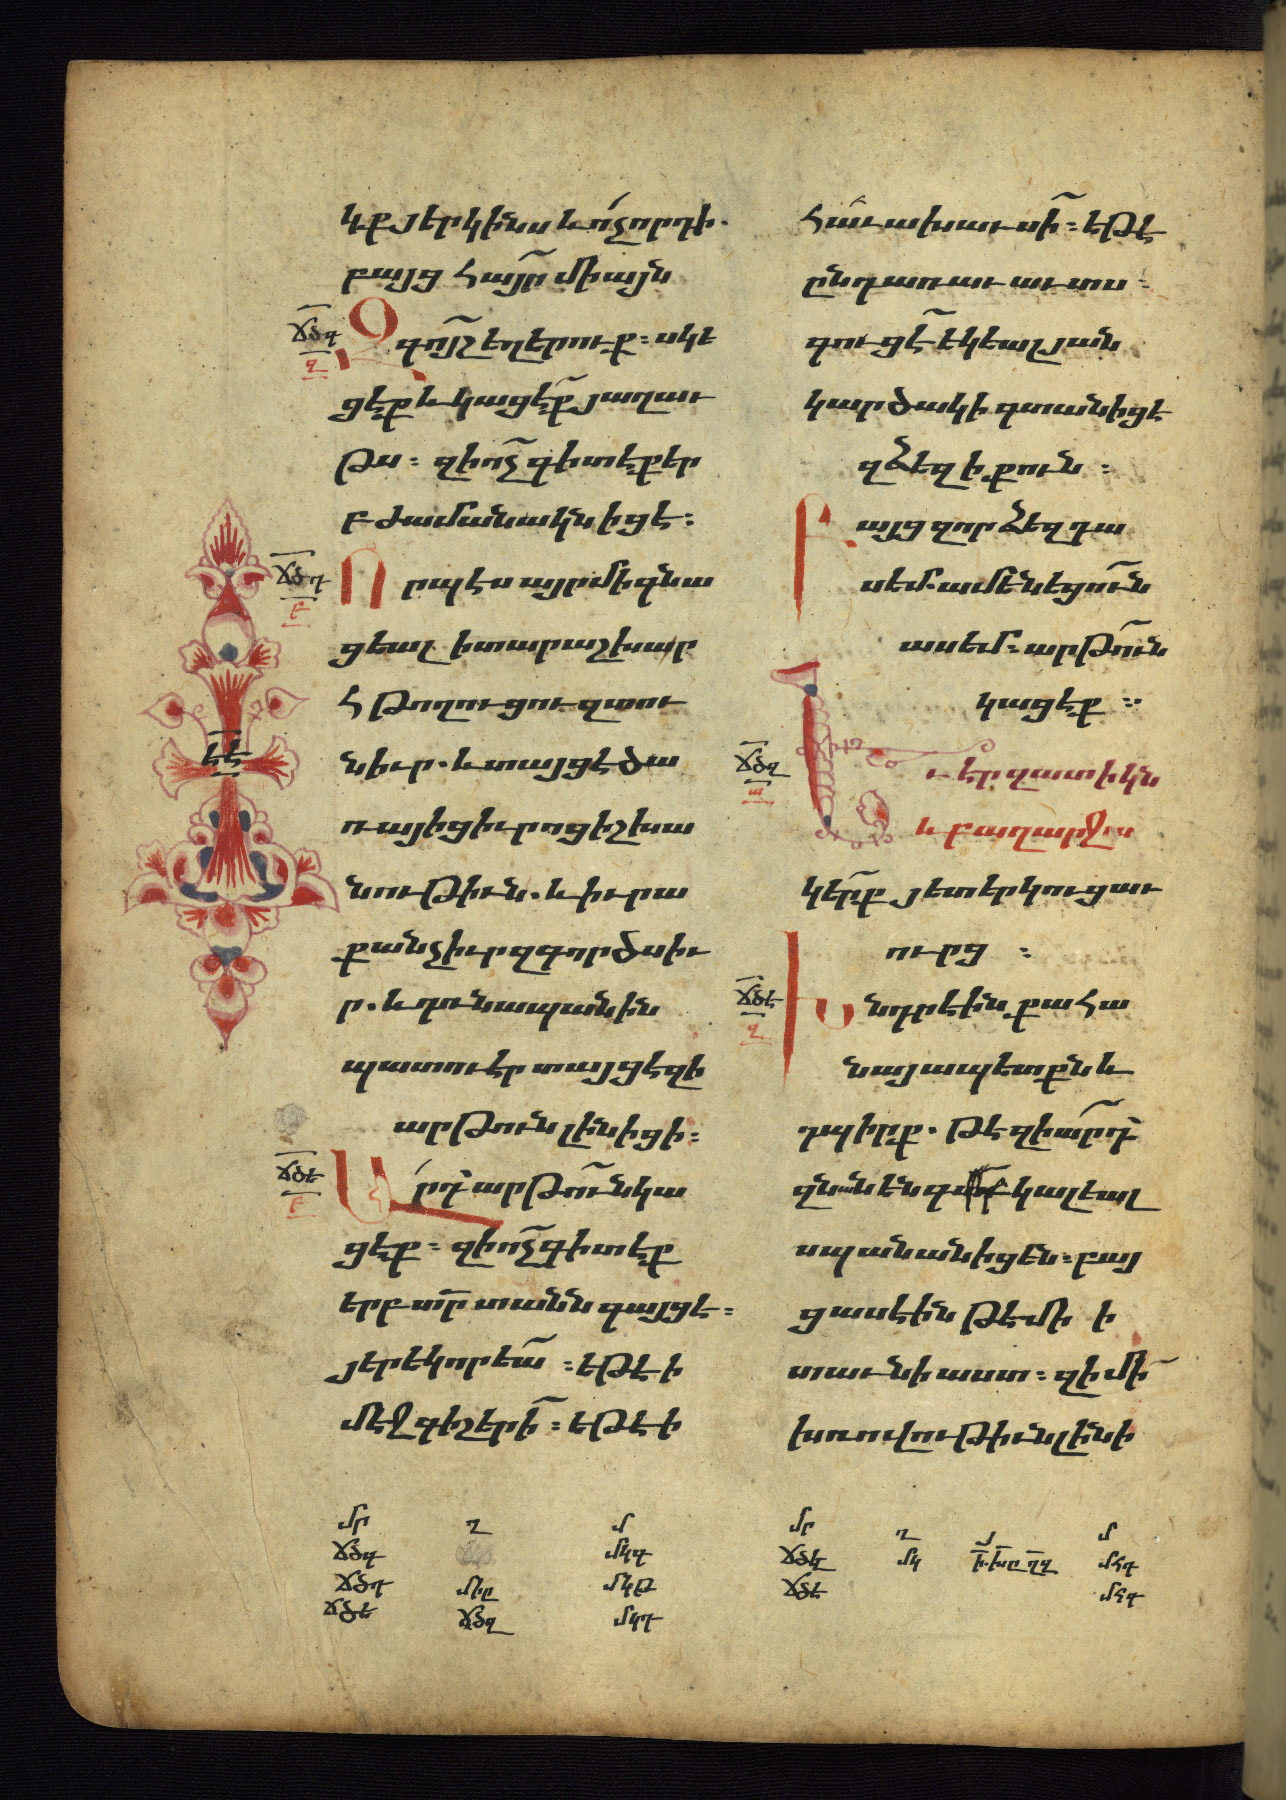 կք յերկինս և ո՛չ որդի.
բայց հայր միայն
ճծգ
Զգոյշ եղերուք։ սկե
ցէք և կացէք յաղաւ
թս։ զի ոչ գիտէք եր
բ ժամանակն իցէ։
ճծդ
բ
Որպէս այր մի գնա
ցեալ ի տար աշխար
հ թողուցու զտու
ն իւր. և տայցէ ծա
ռայից իւրոց իշխա
նութիւն. և իւրա
քանչիւր զգործ իւ
ր. և դունապանին
պատուէր տայցէ զի
արթուն լինիցի։
ճծե
բ
Արդ արթուն կա
ցէք։ զի ոչ գիտէք
երբ տր տանն գայցէ։
յերեկորեա։ եթէ ի
մէջ գիշերի։ եթէ ի
հաւախաւսի։ եթէ
ընդ առաւաւտս։
գուցէ եկեալ յան
կարծակի գտանիցէ
զձեզ ի քուն։
Բայց զոր ձեզ դա
սեմ. ամենեցուն
ասեմ։ արթուն
կացէք։
ճծզ
ա
Եւ էր զատիկն
և բաղարջա
կերք յետ երկուց աւ
ուրց։
ճծէ
Խնդրէին քահա
նայապետքն և
դպիրք. թէ զիարդ
զնա նենգաւ կալեալ
սպանանիցեն։ բայ
ց ասէին թէ մի ի
տաւնի աստ։ զի մի
խռովութիւն լինի
մր ղ մ
ճծգ մկգ
ճծդ
ճծե ճծզ մկդ
մր ղ յ մ
ճծզ մկ մհդ
ճծէ մհգ